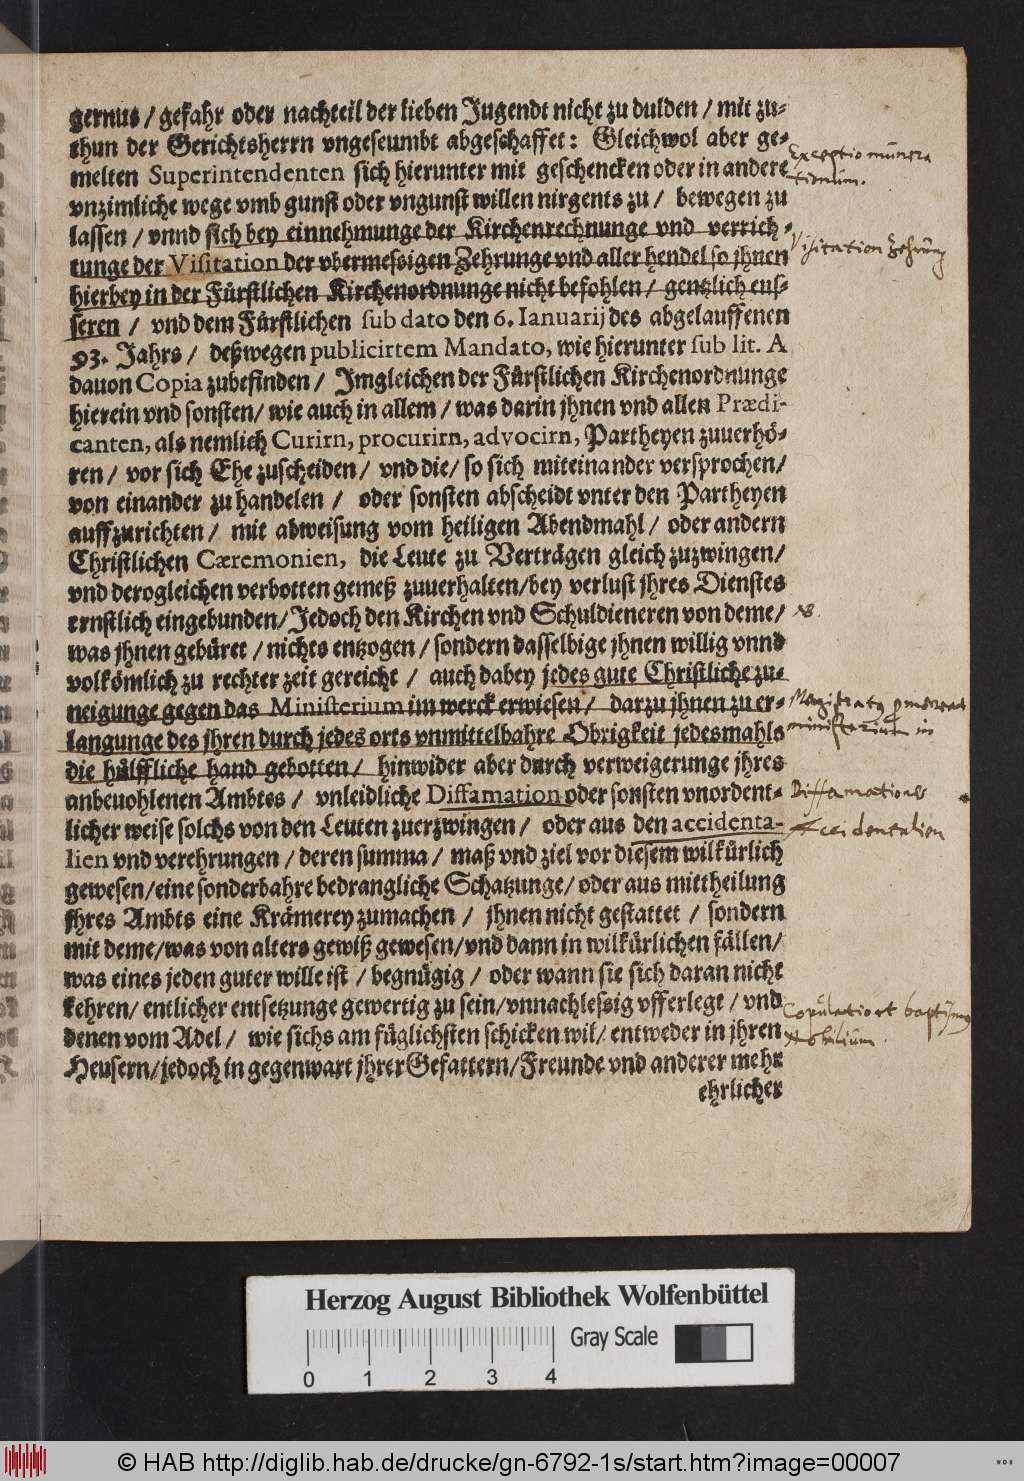 gernus / gefahr oder nachteil der lieben Jugendt nicht zu dulden / mit zu-
thun der Gerichtsherrn vngeseumbt abgeschaffet: Gleichwol aber ge-
melten Superintendenten sich hierunter mit geschencken oder in andere
vnzimliche wege vmb gunst oder vngunst willen nirgents zu / bewegen zu
lassen / vnnd sich bey einnehmunge der Kirchenrechnunge vnd verrich-
tunge der Visitation der vbermessigen Zehrunge vnd aller hendel so jhnen
hierbey in der Fürstlichen Kirchenordnunge nicht befohlen / gentzlich eus-
seren / vnd dem Fürstlichen sub dato den 6. Ianuarij des abgelauffenen
93. Jahrs / deßwegen publicirtem Mandato, wie hierunter sub lit. A
dauon Copia zubefinden / Imgleichen der Fürstlichen Kirchenordnunge
hierein vnd sonsten / wie auch in allem / was darin jhnen vnd allen Prædi-
canten, als nemlich Curirn, procurirn, advocirn, Partheyen zuuerhö-
ren / vor sich Ehe zuscheiden / vnd die / so sich miteinander versprochen /
von einander zu handelen / oder sonsten abscheidt vnter den Partheyen
auffzurichten / mit abweisung vom heiligen Abendmahl / oder andern
Christlichen Cæremonien, die Leute zu Verträgen gleich zuzwingen /
vnd derogleichen verbotten gemeß zuuerhalten / bey verlust jhres Dienstes
ernstlich eingebunden / Jedoch den Kirchen vnd Schuldieneren von deme /
was jhnen gebüret / nichts entzogen / sondern dasselbige jhnen willig vnnd
volkömlich zu rechter zeit gereicht / auch dabey jedes gute Christliche zu-
neigunge gegen das Ministerium im werck erwiesen / darzu jhnen zu er-
langunge des jhren durch jedes orts vnmittelbahre Obrigkeit jedesmahls
die hülffliche hand gebotten / hinwider aber durch verweigerunge jhres
anbeuohlenen Ambtes / vnleidliche Diffamation oder sonsten vnordent-
licher weise solchs von den Leuten zuerzwingen / oder aus den accidenta-
lien vnd verehrungen / deren summa / maß vnd ziel vor diesem wilkürlich
gewesen / eine sonderbahre bedrangliche Schatzunge / oder aus mittheilung
jhres Ambts eine Krämerey zumachen / jhnen nicht gestattet / sondern
mit deme / was von alters gewiß gewesen / vnd dann in wilkürlichen fällen /
was eines jeden guter wille ist / begnügig / oder wann sie sich daran nicht
kehren / entlicher entsetzunge gewertig zu sein / vnnachlessig vfferlegt / vnd
denen vom Adel / wie sichs am füglichsten schicken wil / entweder in jhren
Heusern / jedoch in gegenwart jhrer Gefattern / Freunde vnd anderer mehr
ehrlicher
Visitation Zehrung
ministerium
Diffamationes
Accidentalien
Herzog August Bibliothek Wolfenbüttel
Gray Scale
0 1 2 3 4
© HAB http://diglib.hab.de/drucke/gn-6792-1s/start.htm?image=00007